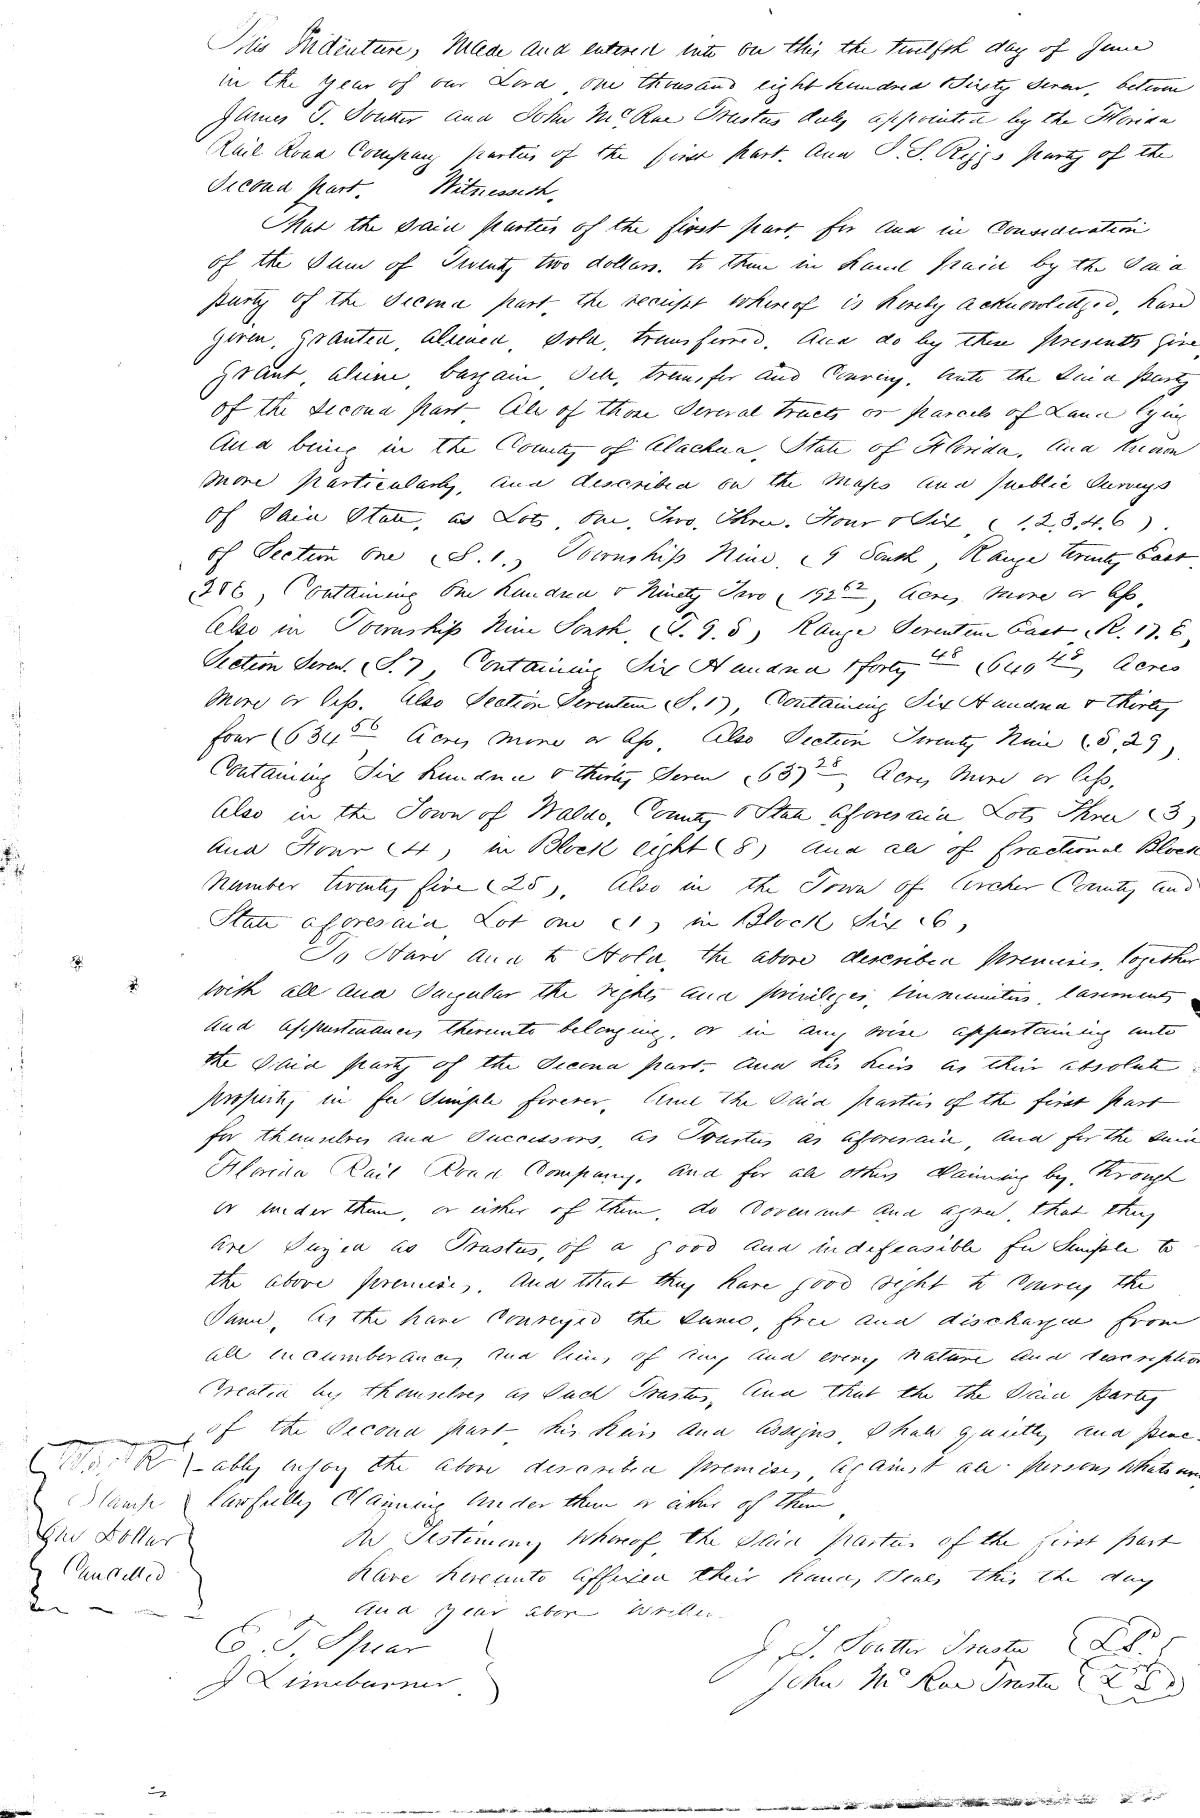 This Indenture, Made and entered into on this the twelfth day of June
in the year of our Lord, one thousand eight hundred & Sixty Seven, between
James T. Soutter and John McRae Trustees duly appointed by the Florida
Rail Road Company parties of the first part. And S. S. Riggs party of the
Second part. Witnesseth.
That the said parties of the first part, for and in Consideration
of the Sum of Twenty two dollars. to them in hand paid by the Said
party of the Second part, the receipt whereof is hereby acknowledged, have
given, granted, aliened, sold, transferred, and do by these presents give
grant, aliene, bargain, Sell, transfer and Convey, unto the Said party
of the Second part, All of those Several tracts or parcels of Land lying
And being in the County of Alachua, State of Florida, and known
more particularly, and described on the maps and public Surveys
of Said State, as Lots, One, Two, Three, Four & Six, (1,2,3,4,6).
of Section One (S. 1.) Township Nine, (9 South, Range twenty East
(20E, Containing One hundred & Ninety Two (192 62) Acres more or less,
Also in Township Nine South, (T. 9. S) Range Seventeen East, R. 17. E,
Section Seven. (S. 7), Containing Six Hundred & forty 48 (640 48) Acres
more or less. Also Section Seventeen (S. 17), Containing Six Hundred & thirty
four (634 56) Acres more or less, Also Section Twenty Nine (S, 29)
Containing Six hundred & thirty Seven (637 28) Acres more or less.
Also in the Town of Waldo, County & State aforesaid Lots Three (3)
and Four (4) in Block eight (8) and all of fractional Block
number twenty five (25), Also in the Town of Archer County and
State aforesaid, Lot one (1) in Block Six (6)
To Have and to Hold, the above described premises, together
with all and Singular the rights and privileges, immunities, easements
and appurtenances thereunto belonging, or in any wise appertaining unto
the Said party of the Second part, and his heirs as their absolute
property in fee Simple forever, And the Said parties of the first part
for themselves and Successors, as Trustees as aforesaid, and for the Said
Florida Rail Road Company, and for all others Claiming by, through
or under them, or either of them, do Covenant and agree, that they
are Seized as Trustees, of a good and indefeasible fee Simple to
the above premises, And that they have good right to Convey the
Same, As the have Conveyed the Same, free and discharged from
all encumberances and liens, of any and every nature and description
Created by themselves as Such Trustees, And that the the Said party
of the Second part, his heirs and assigns, Shall quietly and peac-
-ably enjoy the above described premises, against all persons whatsoever
lawfully Claiming under them or either of them
In Testimony whereof, the Said parties of the first part
have hereunto affixed their hands, Seals, this the day
and year above written
Stamp
One Dollar
Cancelled
E. T. Spear
J Limeburner
J. T. Soutter Trustee (L.S.)
John McRae Trustee (L S)